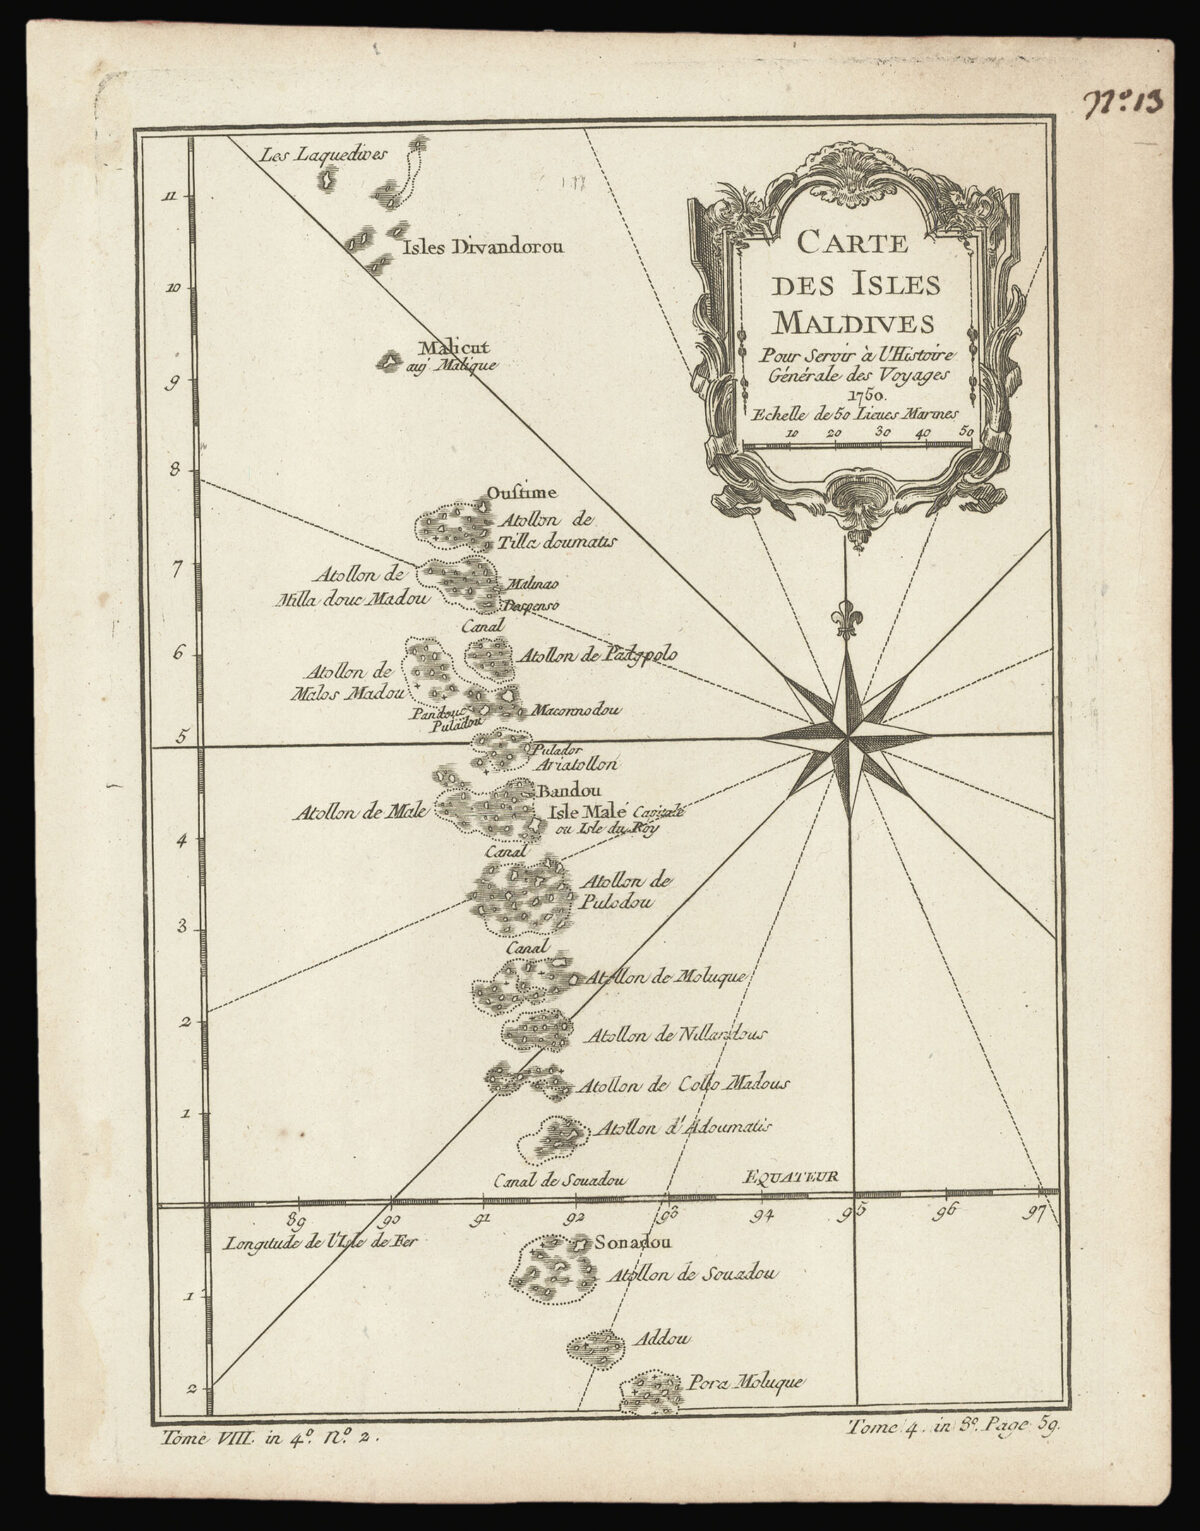 Nº. 13
CARTE
DES ISLES
MALDIVES
Pour Servir à l'Histoire
Générale des Voyages
1750.
Echelle de 50 Lieues Marines
10 20 30 40 50
Les Laquedives
11
Isles Divandorou
10
Malicut
auj Malique
9
8
Oustime
Atollon de
Tilla doumatis
7
Atollon de
Milla douc Madou
Malinao
Daspenso
Canal
6
Atollon de Padypolo
Atollon de
Malos Madou
Pandouc
Puladou
Macomodou
5
Pulador
Ariatollon
Bandou
Atollon de Male
Isle Malé Capitale
ou Isle du Roy
4
Canal
Atollon de
Pulodou
3
Canal
Atollon de Moluque
2
Atollon de Nillandous
Atollon de Collo Madous
1
Atollon d'Adoumatis
Canal de Souadou
EQUATEUR
89 90 91 92 93 94 95 96 97
Longitude de l'Isle de Fer
Sonadou
Atollon de Souadou
1
Addou
Pora Moluque
2
Tome VIII. in 4º. Nº. 2.
Tome 4. in 8º. Page 59.